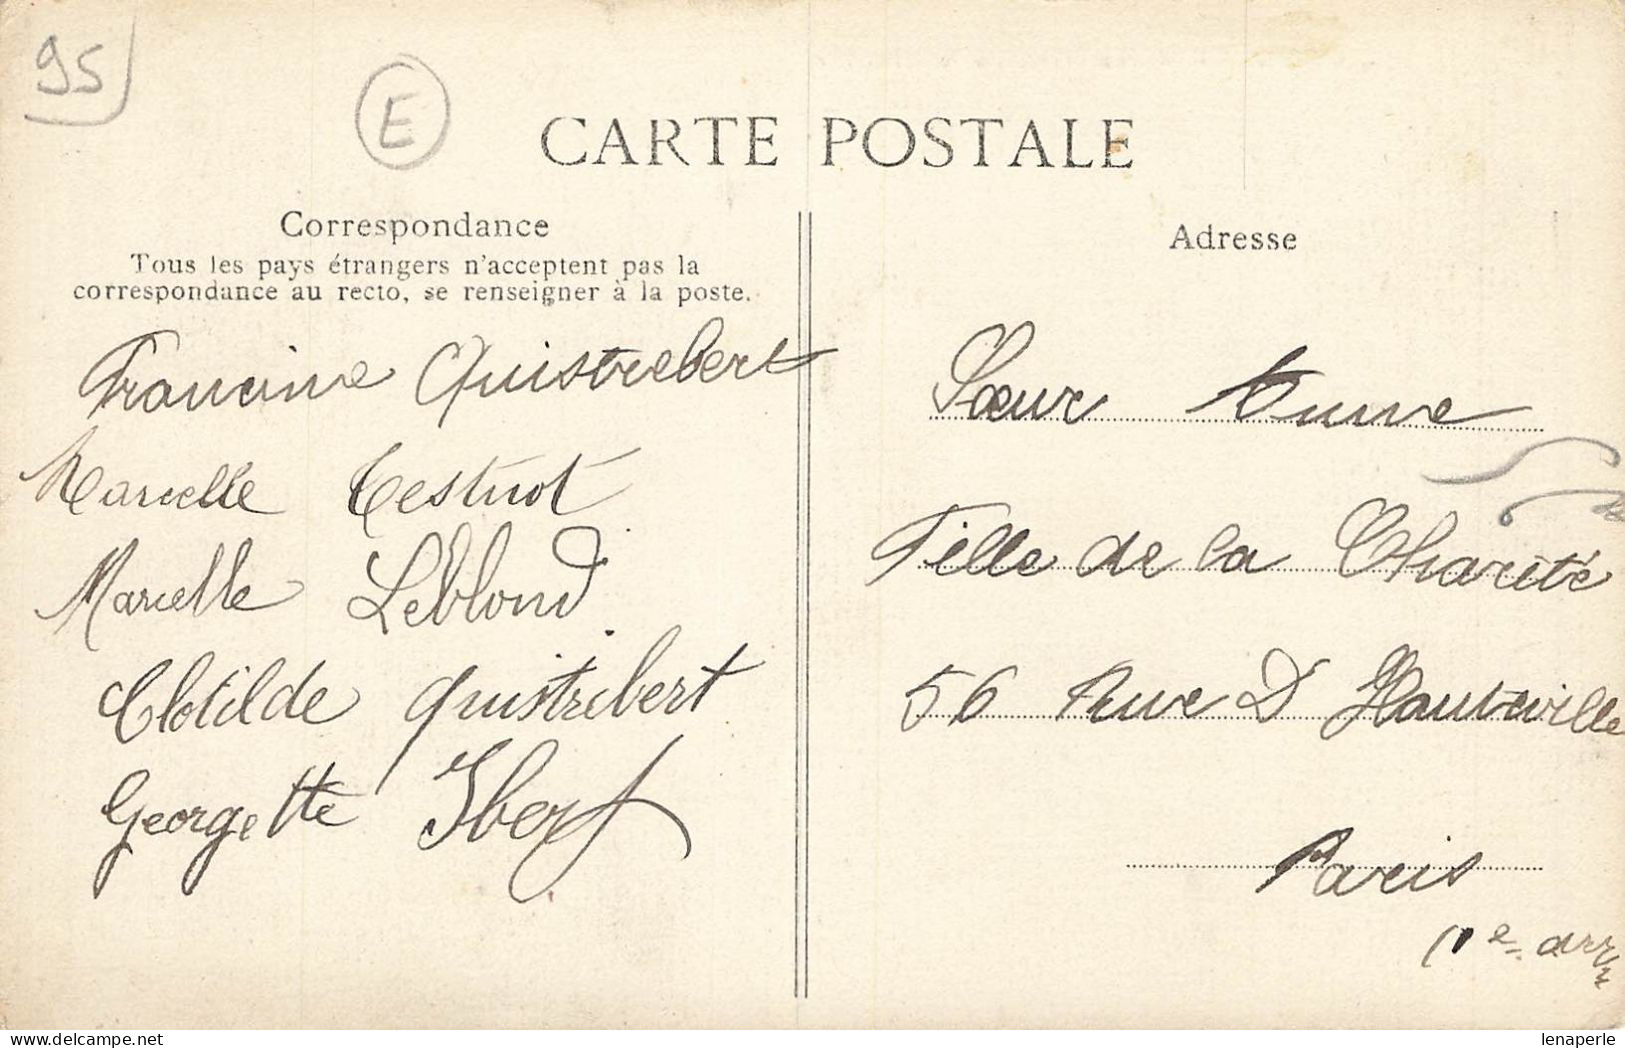 95
E
CARTE POSTALE
Correspondance
Tous les pays étrangers n'acceptent pas la
correspondance au recto, se renseigner à la poste.
Francine Quistrebert
Marcelle Testnot
Marcelle Leblond
Clotilde Quistrebert
Georgette
Adresse
Sœur Anne
Fille de la Charité
56 Rue D Hauteville
Paris
e arr
lenaperle